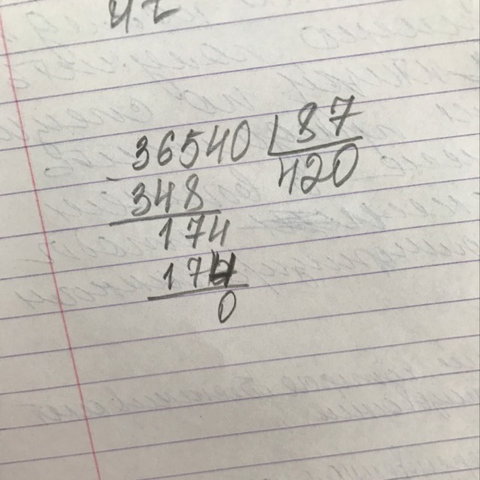 36540 87
- 348 420
174
174
0